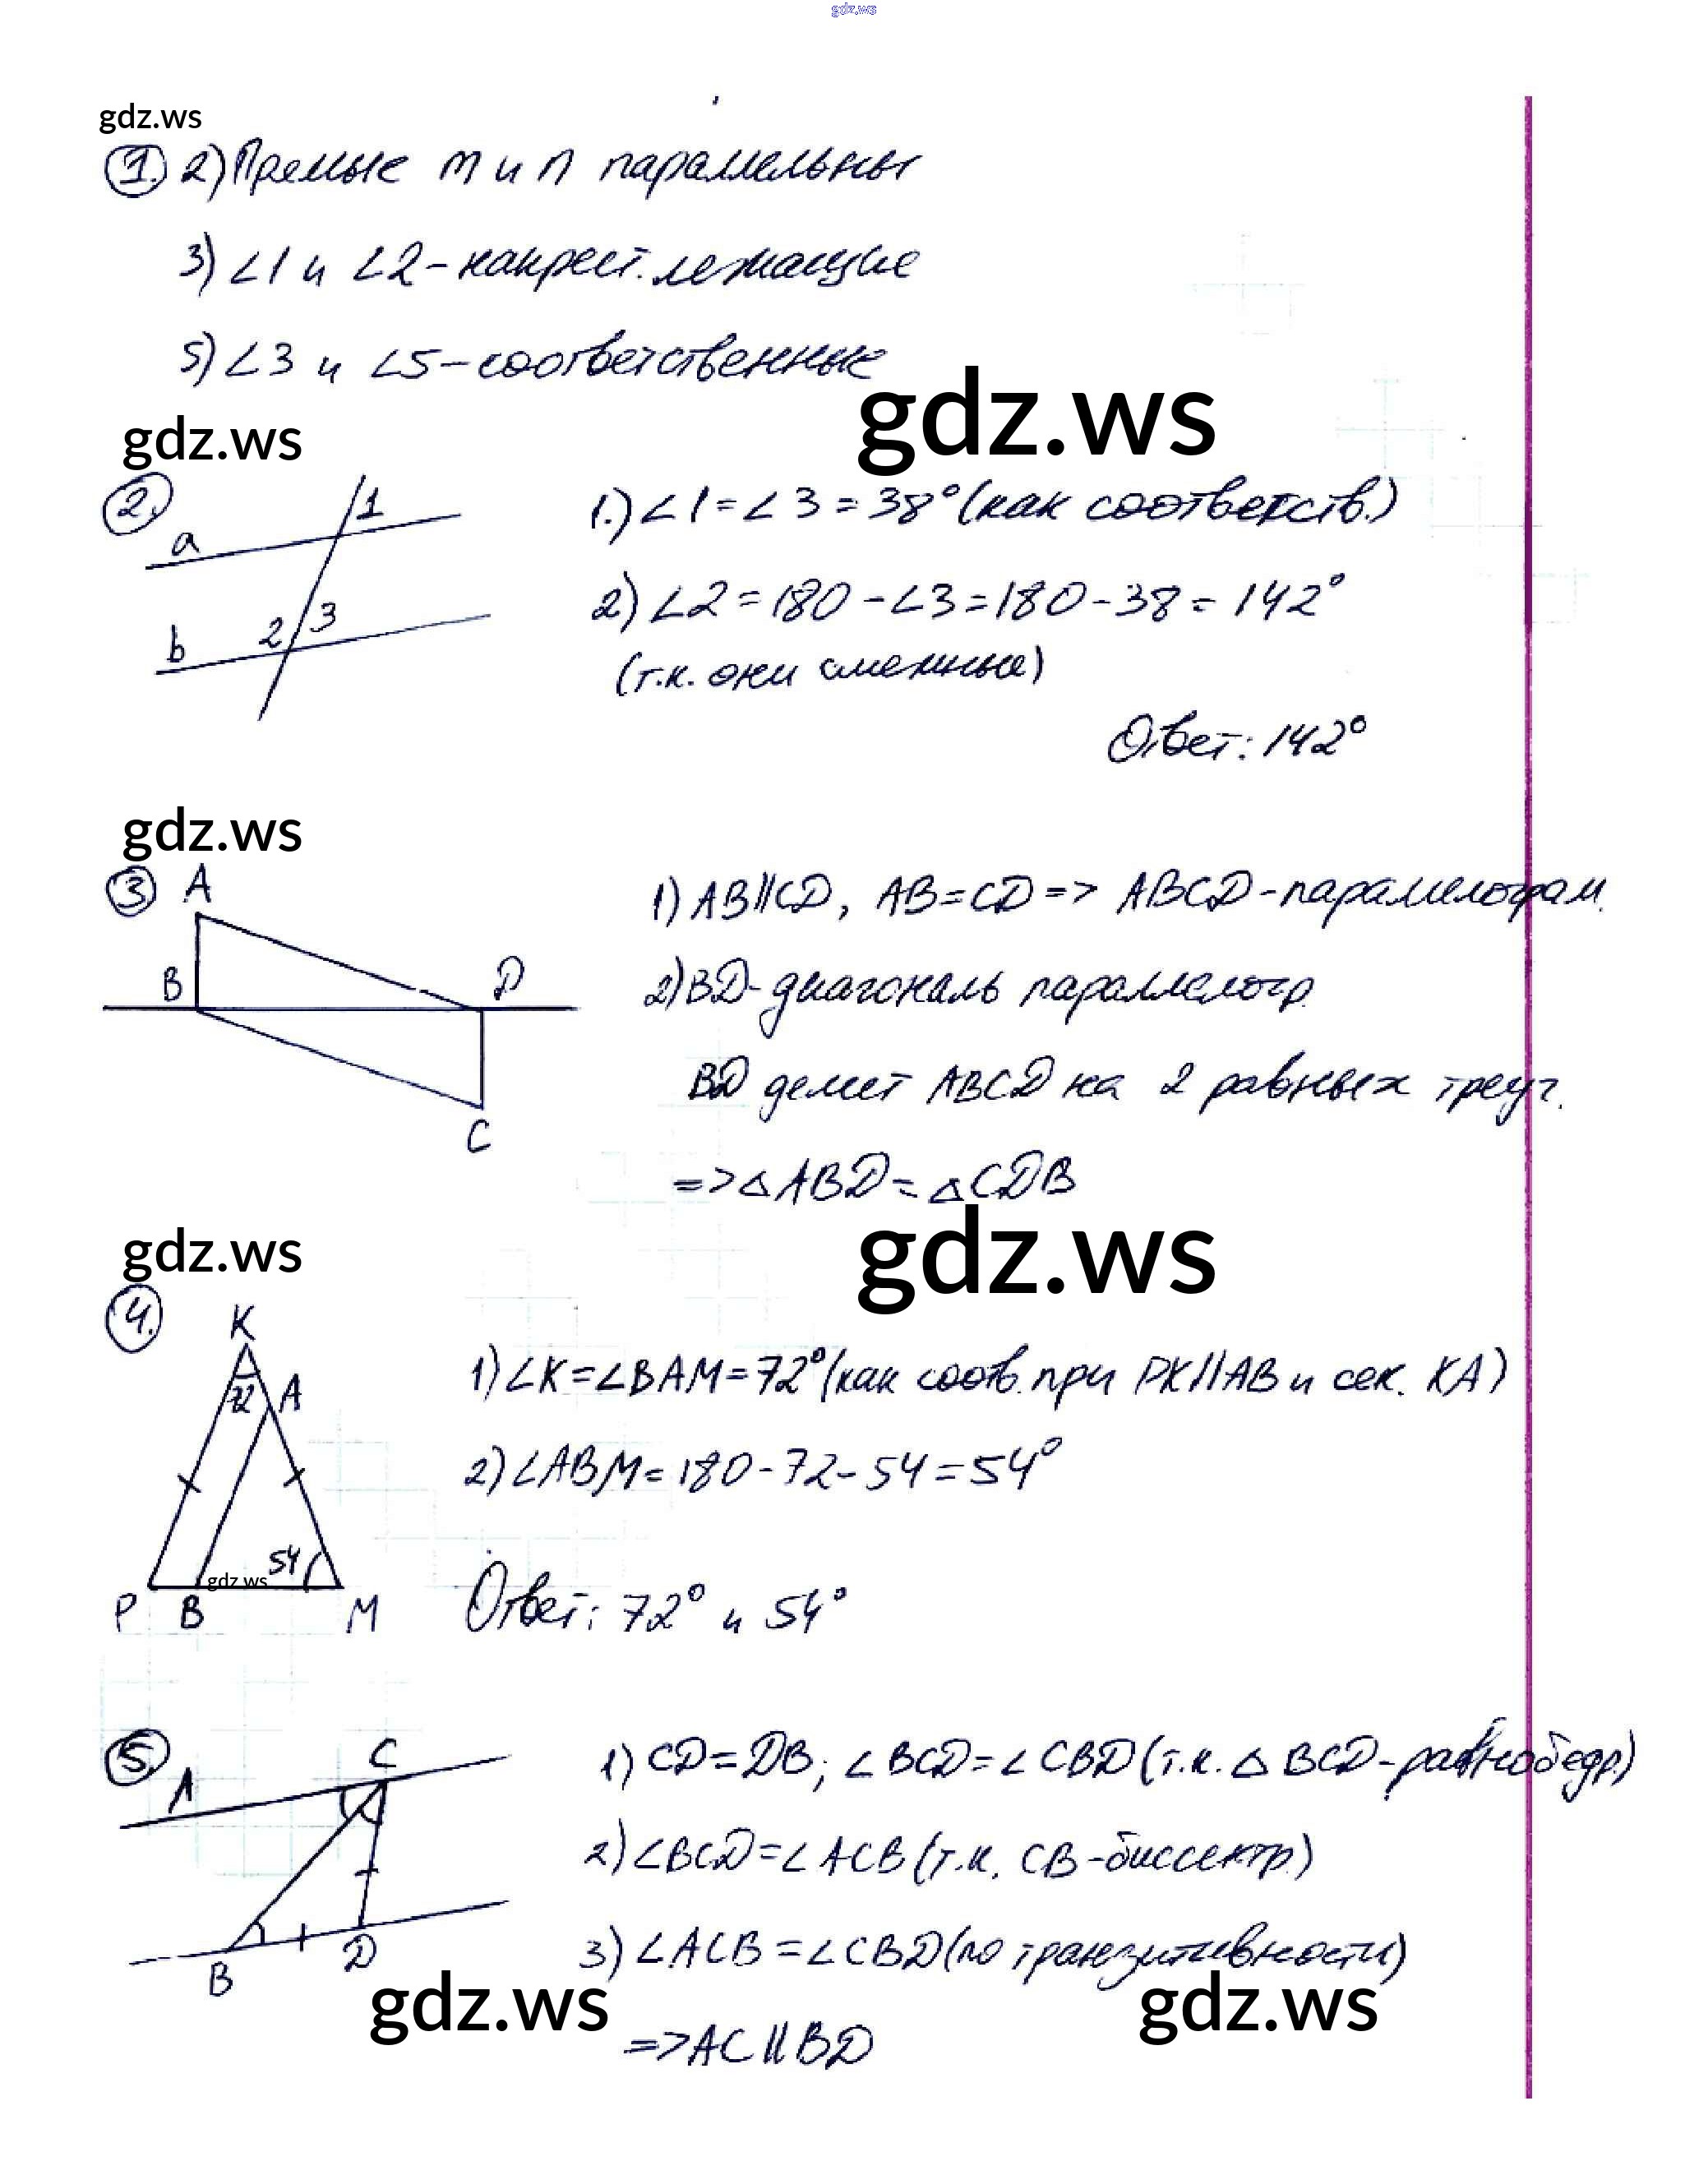 gdz.ws
gdz.ws
1. 2) Прямые m и n параллельны
3) ∠1 и ∠2 - накрест. лежащие
5) ∠3 и ∠5 - соответственные
gdz.ws
gdz.ws
2.
1
a
2
3
b
1.) ∠1 = ∠3 = 38° (как соответств.)
2) ∠2 = 180 - ∠3 = 180 - 38 = 142°
(т.к. они смежные)
Ответ: 142°
gdz.ws
3
A
B
D
C
1) AB∥CD, AB=CD => ABCD - параллелограм.
2) BD - диагональ параллелогр.
BD делит ABCD на 2 равных треуг.
=> △ABD = △CDB
gdz.ws
gdz.ws
4.
K
72
A
54
gdz.ws
P
B
M
1) ∠K = ∠BAM = 72° (как соотв. при PK∥AB и сек. KA)
2) ∠ABM = 180 - 72 - 54 = 54°
Ответ: 72° и 54°
5.
A
C
B
D
1) CD = DB; ∠BCD = ∠CBD (т.к. △BCD - равнобедр.)
2) ∠BCD = ∠ACB (т.к. CB - биссектр.)
3) ∠ACB = ∠CBD (по транзитивности)
gdz.ws
gdz.ws
=> AC∥BD